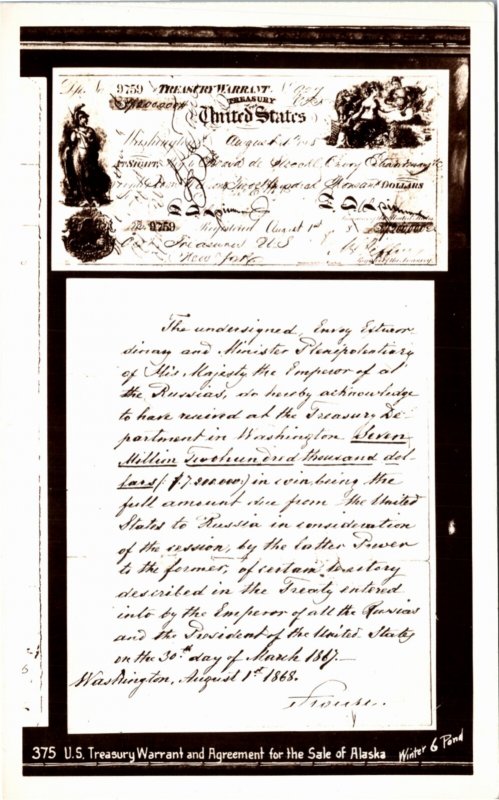 9759 TREASURY WARRANT
TREASURY
of the
United States
Washington August 1st
AT SIGHT
DOLLARS
No. 9759 Registered August 1st
Treasurer U.S
New York
The undersigned, Envoy Extraor
dinary and Minister Plenipotentiary
of His Majesty the Emperor of all
the Russias, do hereby acknowledge
to have received at the Treasury De-
partment in Washington Seven
Million Two hundred thousand dol-
lars ($7.200000) in coin, being the
full amount due from the United
States to Russia in consideration
of the cession, by the latter Power
to the former, of certain territory
described in the Treaty entered
into by the Emperor of all the Russias
and the President of the United States
on the 30th day of March 1867.—
Washington, August 1st 1868.
Stoeckl.
375 U.S. Treasury Warrant and Agreement for the Sale of Alaska Winter & Pond